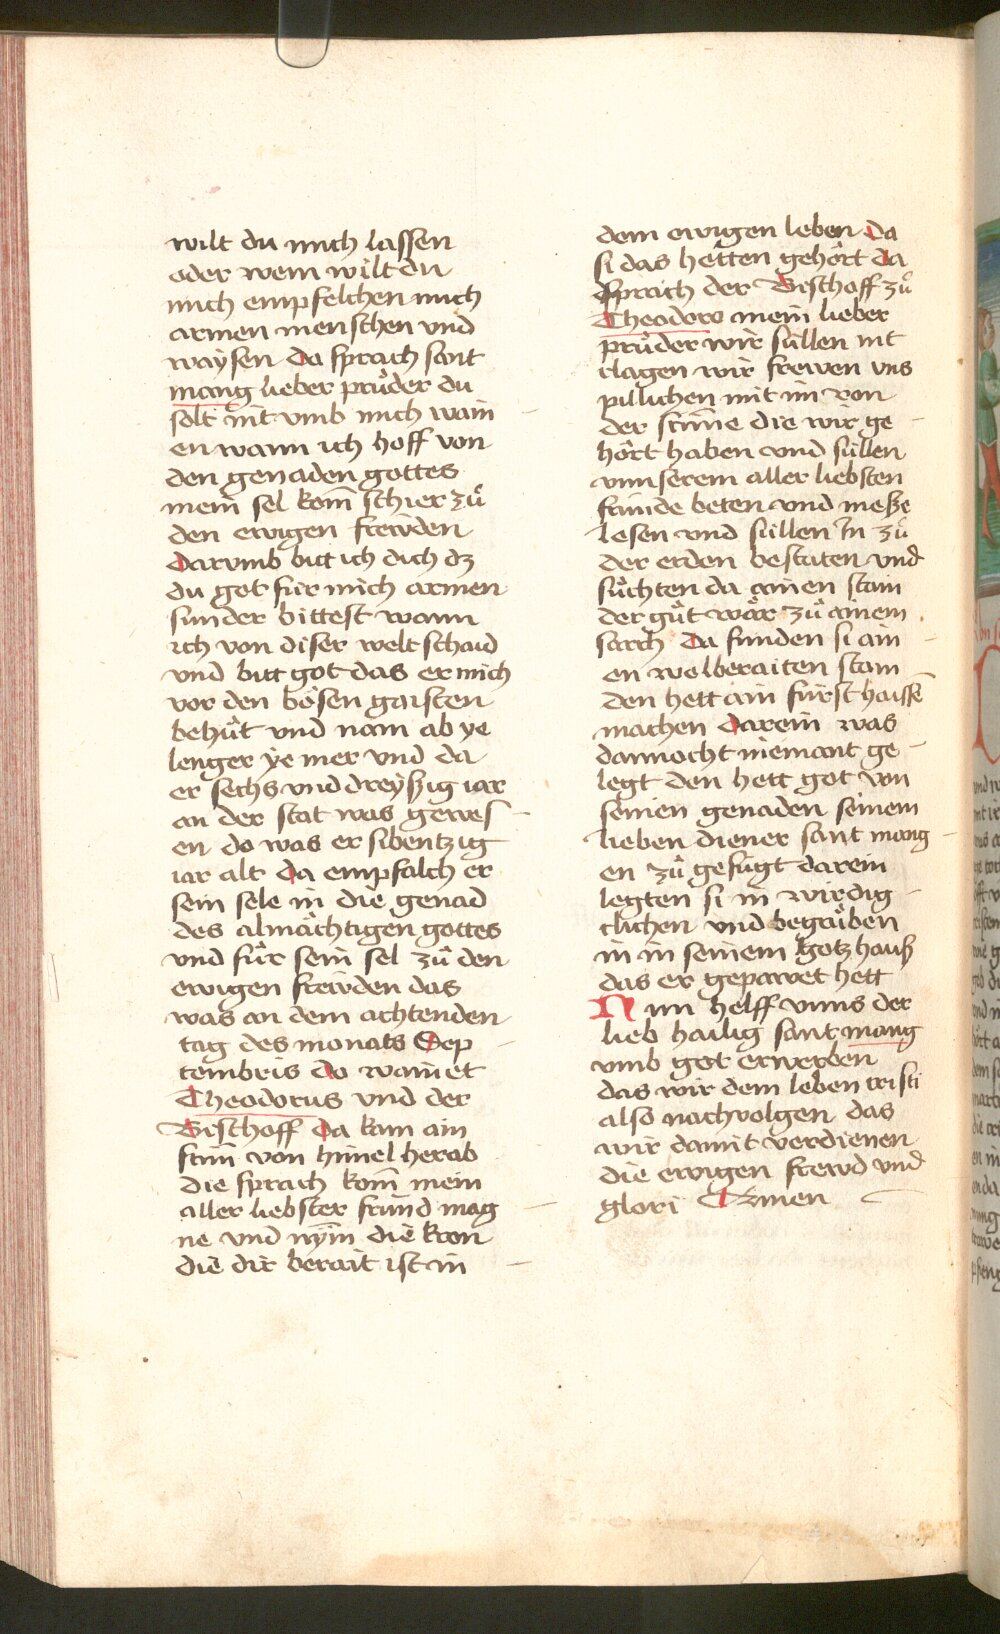 wilt du mich lassen
oder wem wilt du
mich empfelchen mich
armen menschen vnd
waysen Da sprach sant
mang lieber průder du
solt nit vmb mich wain
en wann ich hoff von
den genaden gottes
mein sel kom̄ schier zů
den ewigen frewden
Darumb bitt ich dich dz
du got für mich armen
sünder bittest wann
ich von diser welt schaid
vnd bitt got das er mich
vor den bösen gaisten
behüt vnd nam ab ye
lenger ye mer vnd da
er sechs vnd dreyßig iar
an der stat was gewes
en do was er sibentzig
iar alt Da empfalch er
sein sele in die genad
des almächtigen gottes
vnd für sein sel zů den
ewigen frewden das
was an dem achtenden
tag des monats Sep
tembris do wainet
Theodorus vnd der
Bischoff Da kam ain
stim̄ von himel herab
die sprach kom̄ mein
aller liebster fründ mag
ne vnd nym̄ die kron
die dir berait ist in
dem ewigen leben Da
si das hetten gehört da
sprach der Bischoff zů
Theodoro mein lieber
průder wir süllen nit
clagen wir frewen vns
pillichen mit im von
der stim̄e die wir ge
hört haben vnd süllen
vnnserem aller liebsten
fründe beten vnd meße
lesen vnd süllen In zů
der erden bestaten vnd
sůchten da ainen stain
der gůt wär zů ainem
sarch Da funden si ain
en wolberaiten stain
den hett ain fürst haissē
machen Darein was
dannocht niemant ge
legt den hett got von
seinen genaden seinem
lieben diener sant mang
en zů gefügt darein
legten si in wirdig
clichen vnd begrůben
in in seinem gotzhauß
das er gepawet hett
Nun helff vnns der
lieb hailig sant mang
vmb got erwerben
das wir dem leben cristi
also nachvolgen das
wir damit verdienen
die ewigen frewd vnd
glori Amen